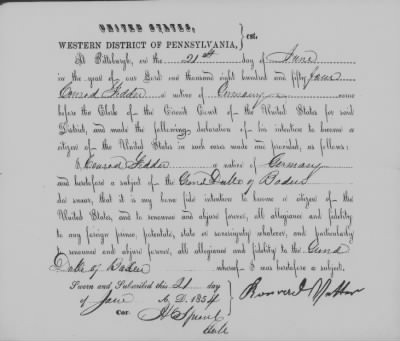 UNITED STATES,
WESTERN DISTRICT OF PENNSYLVANIA, } sct.
At Pittsburgh, on the 21st day of June
in the year of our Lord one thousand eight hundred and fifty four
Conrad a native of Germany came
before the Clerk of the Circuit Court of the United States for said
District, and made the following declaration of his intention to become a
citizen of the United States in such cases made and provided, as follows:
I, Conrad a native of Germany
and heretofore a subject of the Grand Duke of Baden
do swear, that it is my bona fide intention to become a citizen of the
United States, and to renounce and abjure forever, all allegiance and fidelity
to any foreign prince, potentate, state or sovereignty whatever, and particularly
to renounce and abjure forever, all allegiance and fidelity to the Grand
Duke of Baden whereof I was heretofore a subject.
Sworn and Subscribed this 21 day
of June A. D. 1854
Cor. H Sproul
Clk